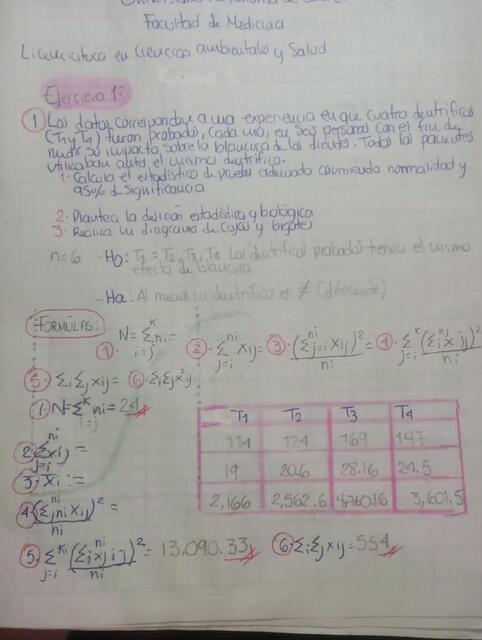 Facultad de Medicina
Licenciatura en Ciencias ambientales y Salud
Ejercicio 1:
① Los datos corresponden a una experiencia en que cuatro dentrificos
(T1 y T4) fueron probados, cada uno, en seis personas con el fin de
medir su impacto sobre la blancura de los dientes. Todos los pacientes
utilizaban antes el mismo dentrifico.
1. Calcula el estadistico de prueba adecuado asumiendo normalidad y
95% de significancia
2. Plantea la desicón estadistica y biologica
3. Realiza un diagrama de cajas y bigotes
n=6 -Ho: T1 = T2, T3, T4 Los dentrificos probados tienen el mismo
efecto de blancura
-Ha: Al menos un dentrifico es ≠ (diferente)
FORMULAS:
①. N = Σ^k_{i=j} ni = ②. Σ^{ni}_{j=i} Xij = ③. (Σ^{ni}_{j=i} Xij)² / ni = ④. Σ^k_{j=i} (Σ^{nj}_{i} X ij)² / ni
⑤. Σi Σj xij = ⑥. Σi Σj x²ij =
1. N = Σ^k_{i=j} ni = 24
② Σ^{ni}_{j=i} xij =
③. X̄i . =
④ (Σj ni Xij)² / ni =
T1 T2 T3 T4
114 124 169 147
19 20.6 28.16 24.5
2,166 2,562.6 4760.16 3,601.5
⑤. Σ^{ki}_{j=i} (Σ^{ni}_{j} x j i j)² / ni = 13,090.33 ⑥. Σi Σj xij = 554